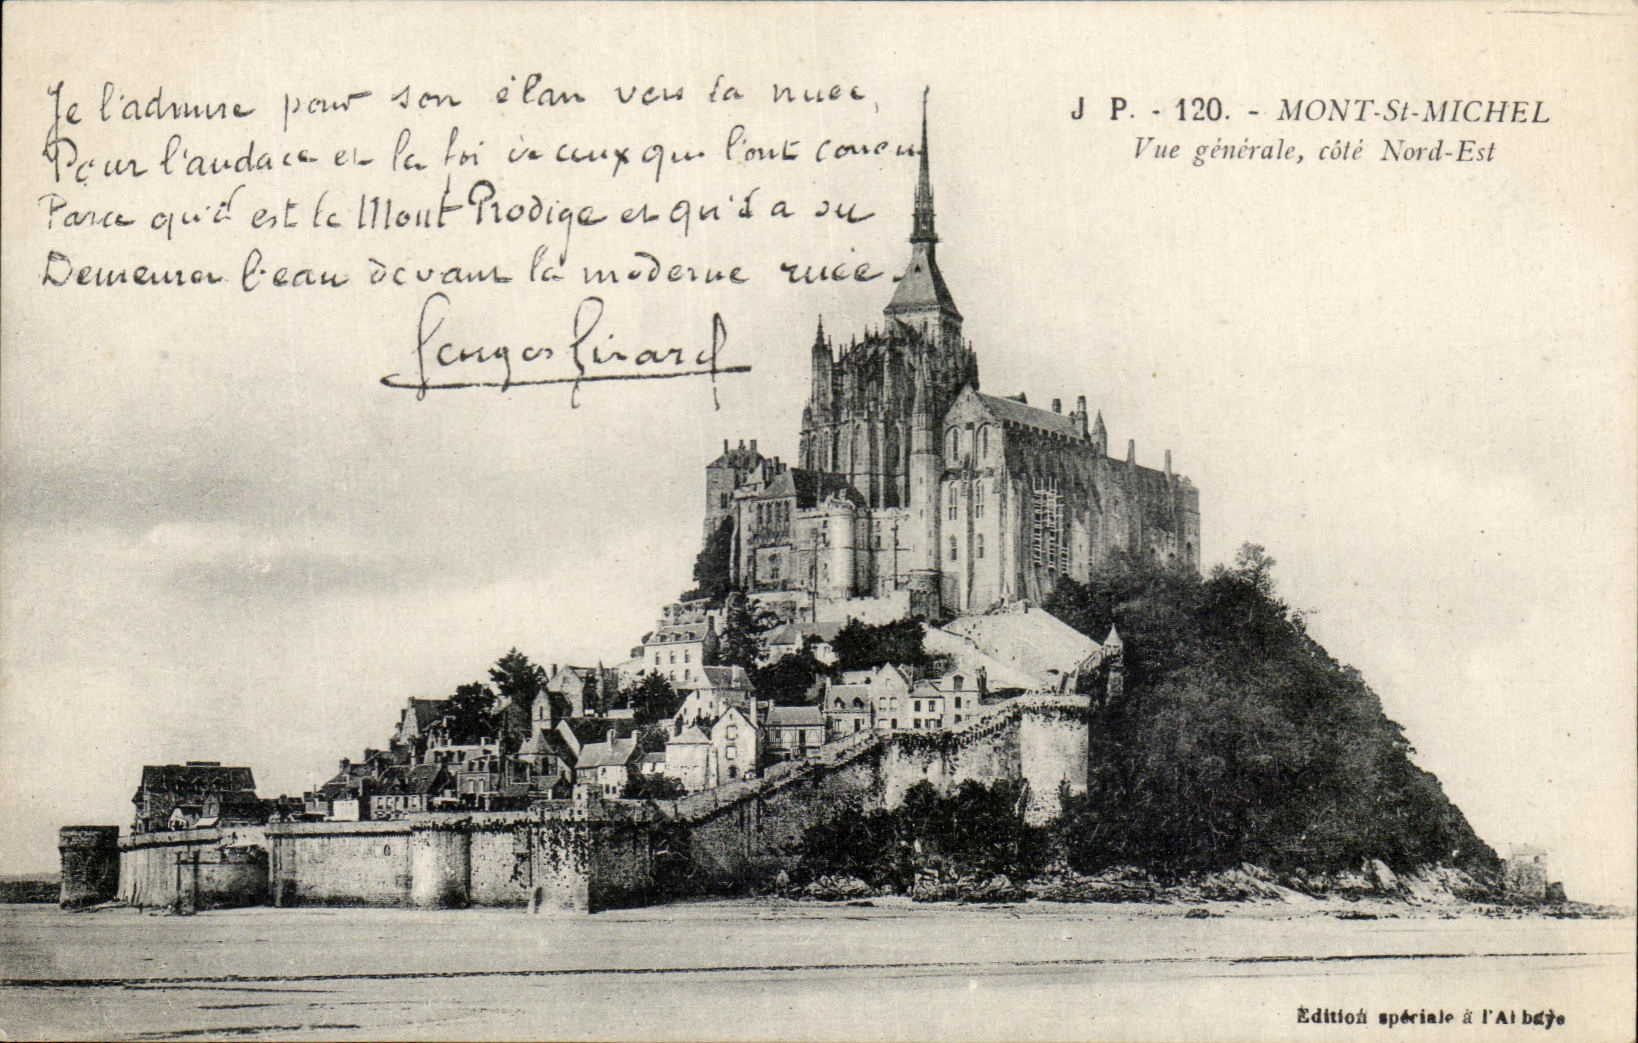 Je l'admire pour son élan vers la nuée,
Pour l'audace et la foi de ceux qui l'ont conçu
Parce qu'il est le Mont Prodige et qu'il a su
Demeurer beau devant la moderne ruée.
Georges Girard
J P. - 120. - MONT-St-MICHEL
Vue générale, côté Nord-Est
Edition spéciale à l'Abbaye